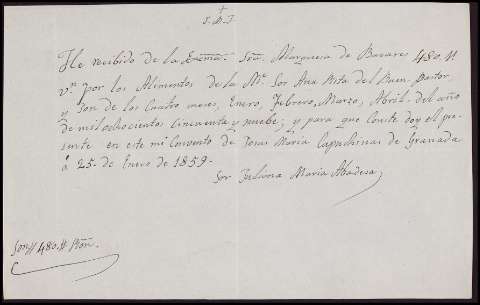 J. M. J.
He recibido de la Exma. Sra. Marquesa de Bacares 480. rr
vn. por los Alimentos de la Me. Sor Ana Rita del Buen-Pastor,
y son de los Cuatro meses, Enero, Febrero, Marzo, Abril. del año
de milochocientos cincuenta y nuebe; y para que Conste doy el pre-
sente en este mi Convento de Jesus Maria Capuchinas de Granada
á 25- de Enero de 1859-
Sor Juliana Maria Abadesa
Son 480. rr. vn.